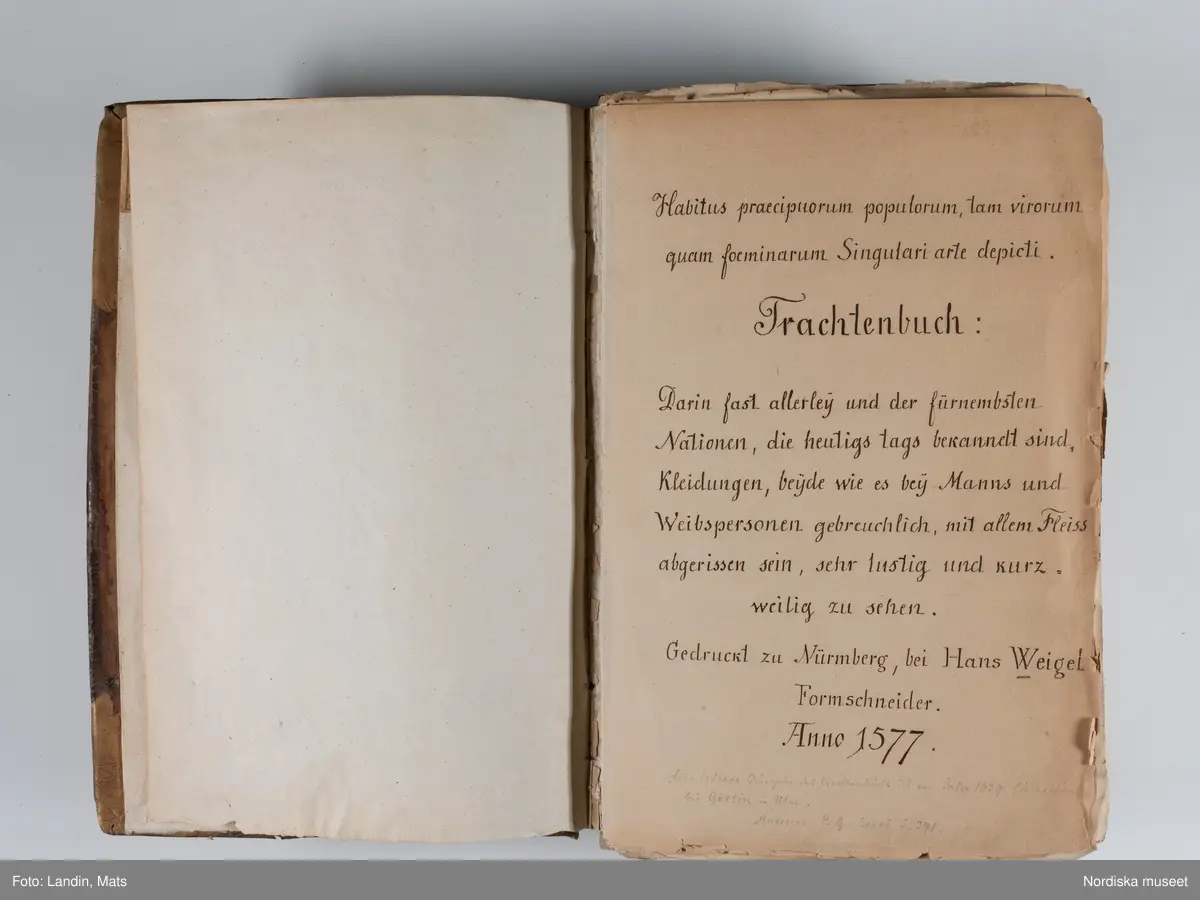 Habitus praecipuorum populorum, tam virorum
quam foeminarum Singulari arte depicti.
Trachtenbuch:
Darin fast allerleÿ und der fürnembsten
Nationen, die heutigs tags bekanndt sind,
Kleidungen, beÿde wie es beÿ Manns und
Weibspersonen gebreuchlich, mit allem Fleiss
abgerissen sein, sehr lustig und kurz=
weilig zu sehen.
Gedruckt zu Nürmberg, bei Hans Weigel
Formschneider.
Anno 1577.
bei Görlin in Ulm.
Foto: Landin, Mats
Nordiska museet